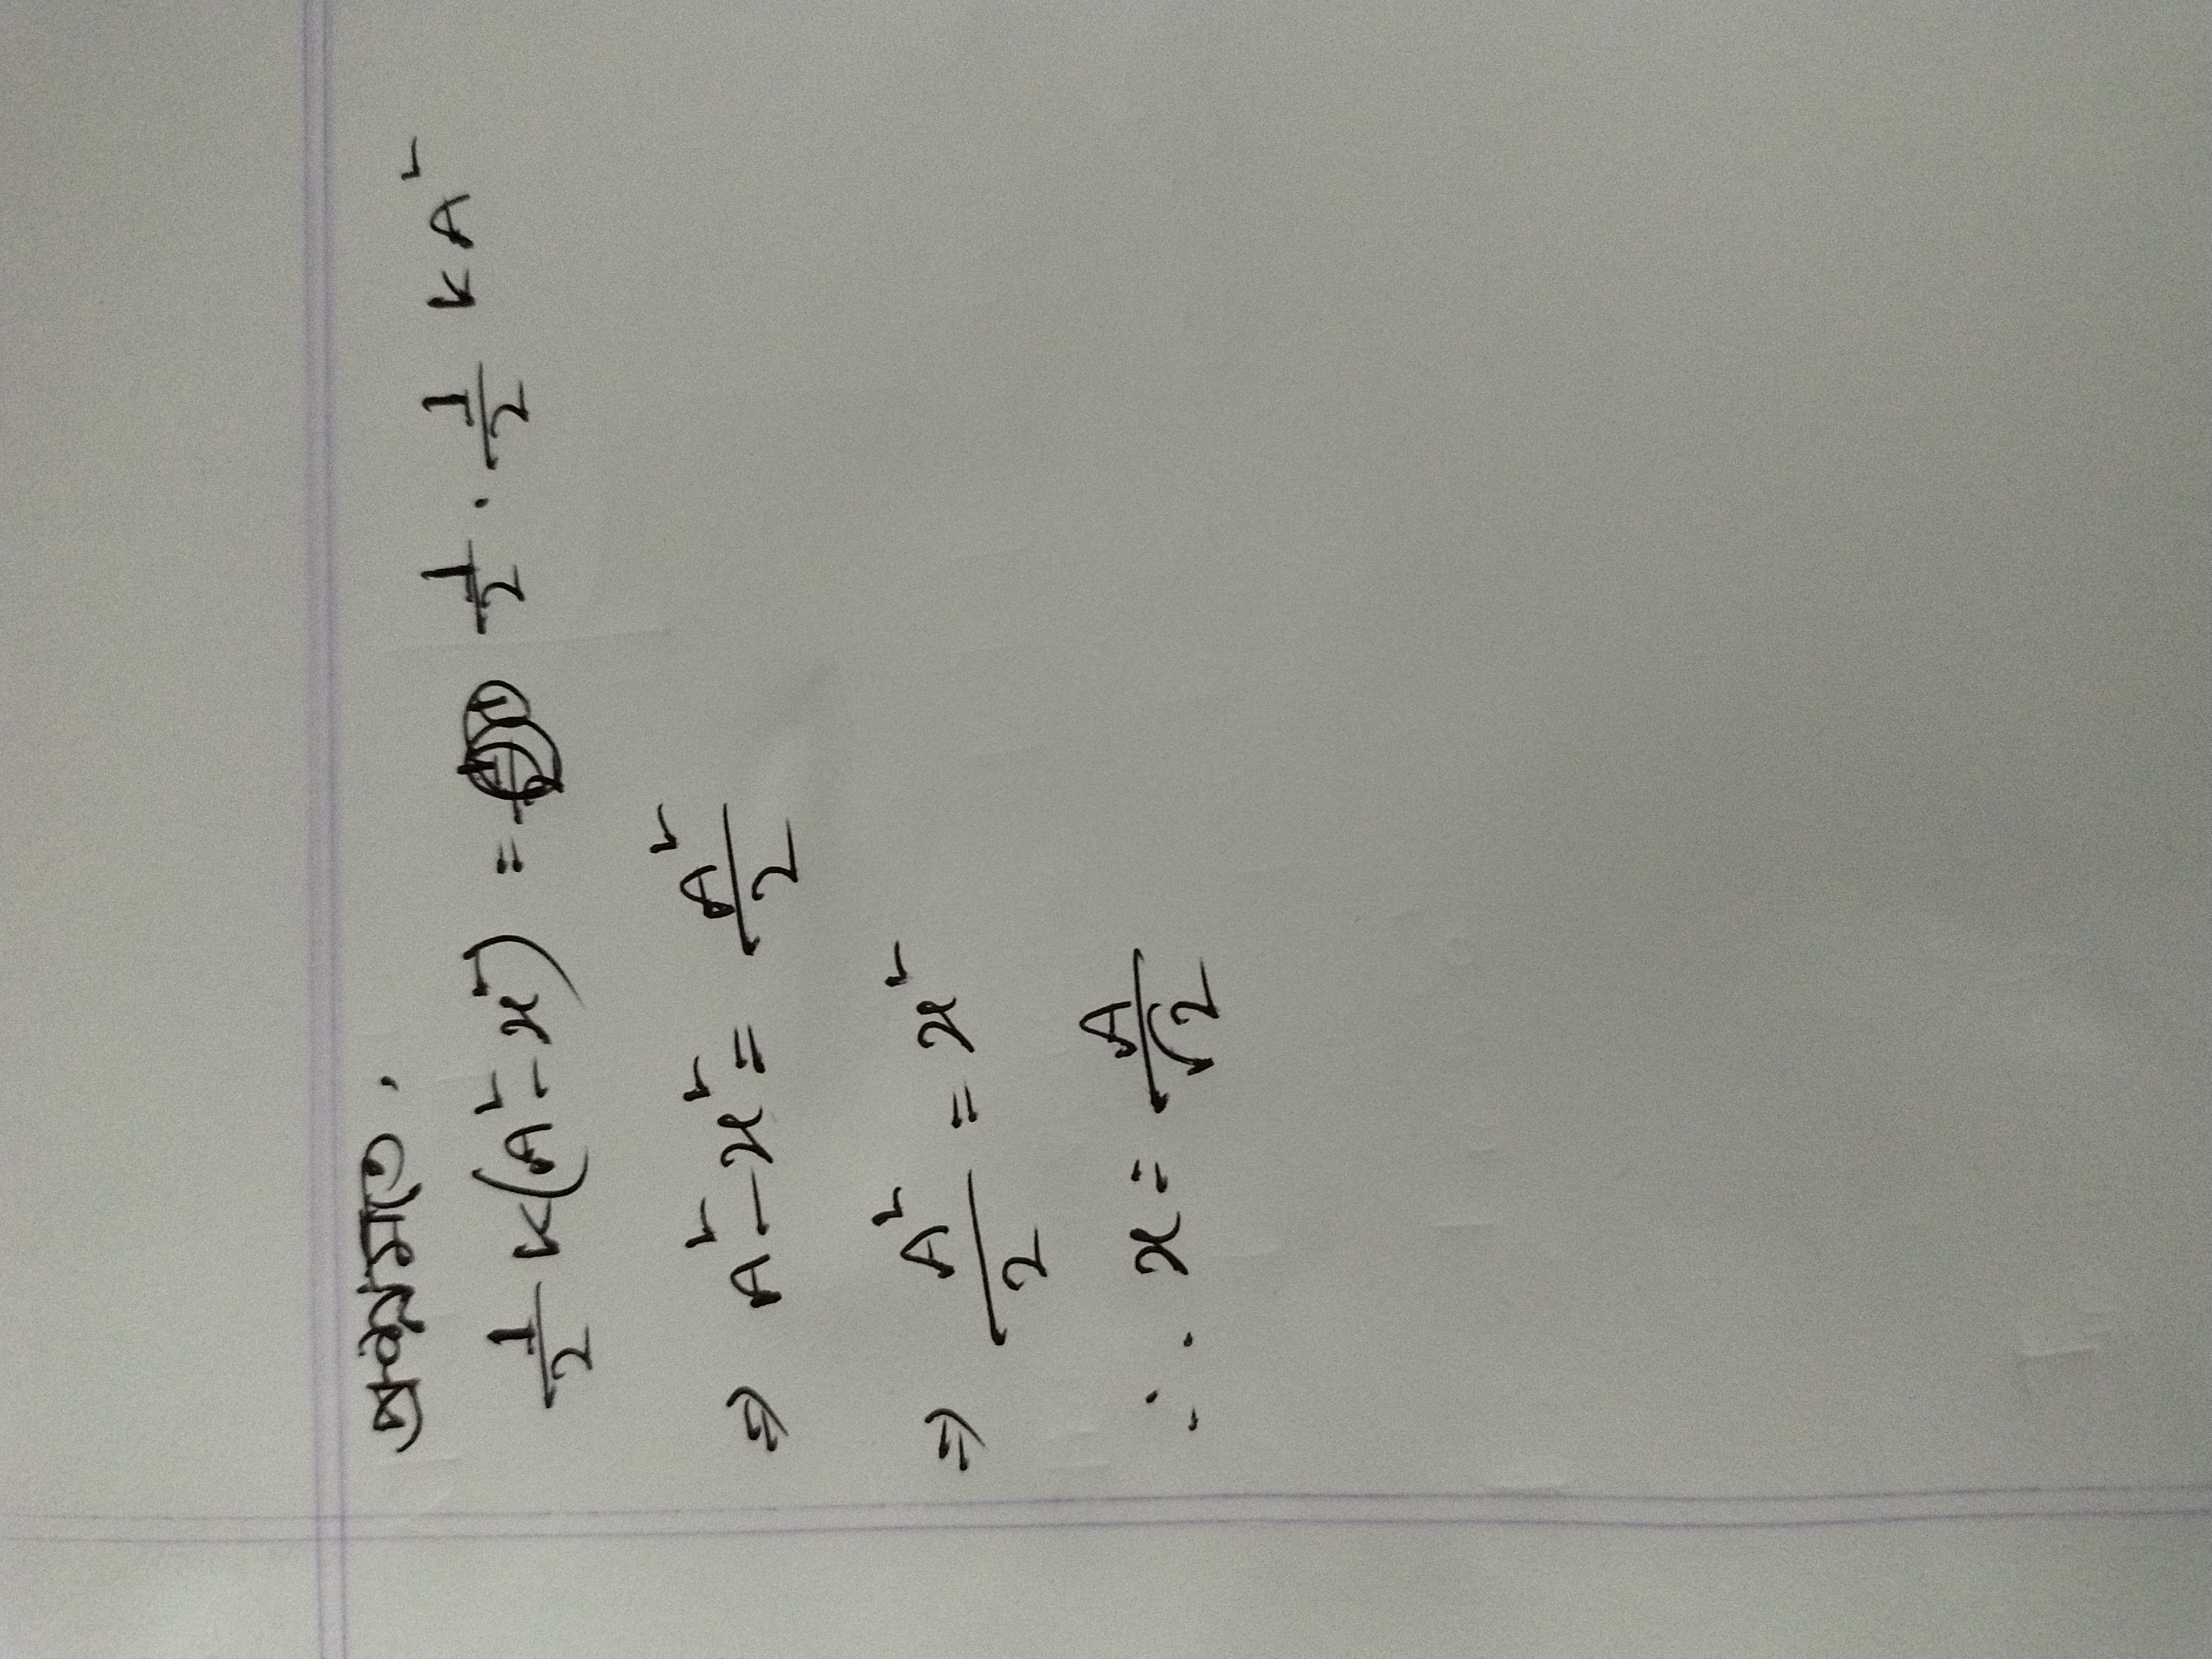 প্রশ্নমতে,
½ K(A² - x²) = ½ · ½ KA²
⇒ A² - x² = A²/2
⇒ A²/2 = x²
∴ x = A/√2